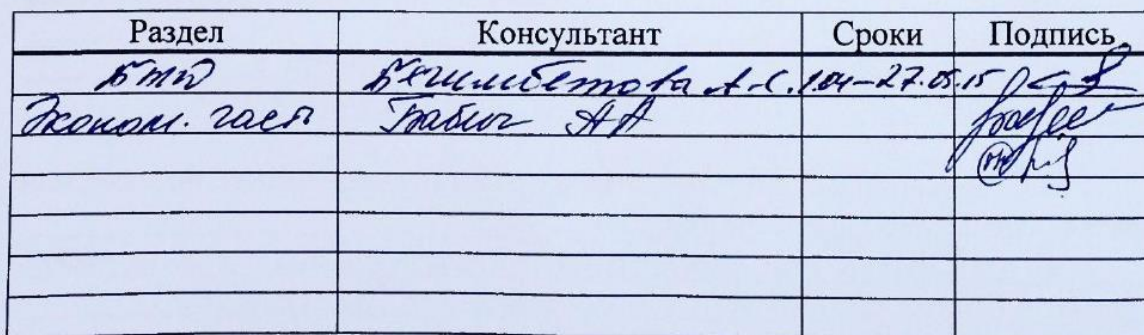 Раздел Консультант Сроки Подпись
БТД Бегимбетова А.С. 1.04-27.05.15
Эконом. часть Бабич АА